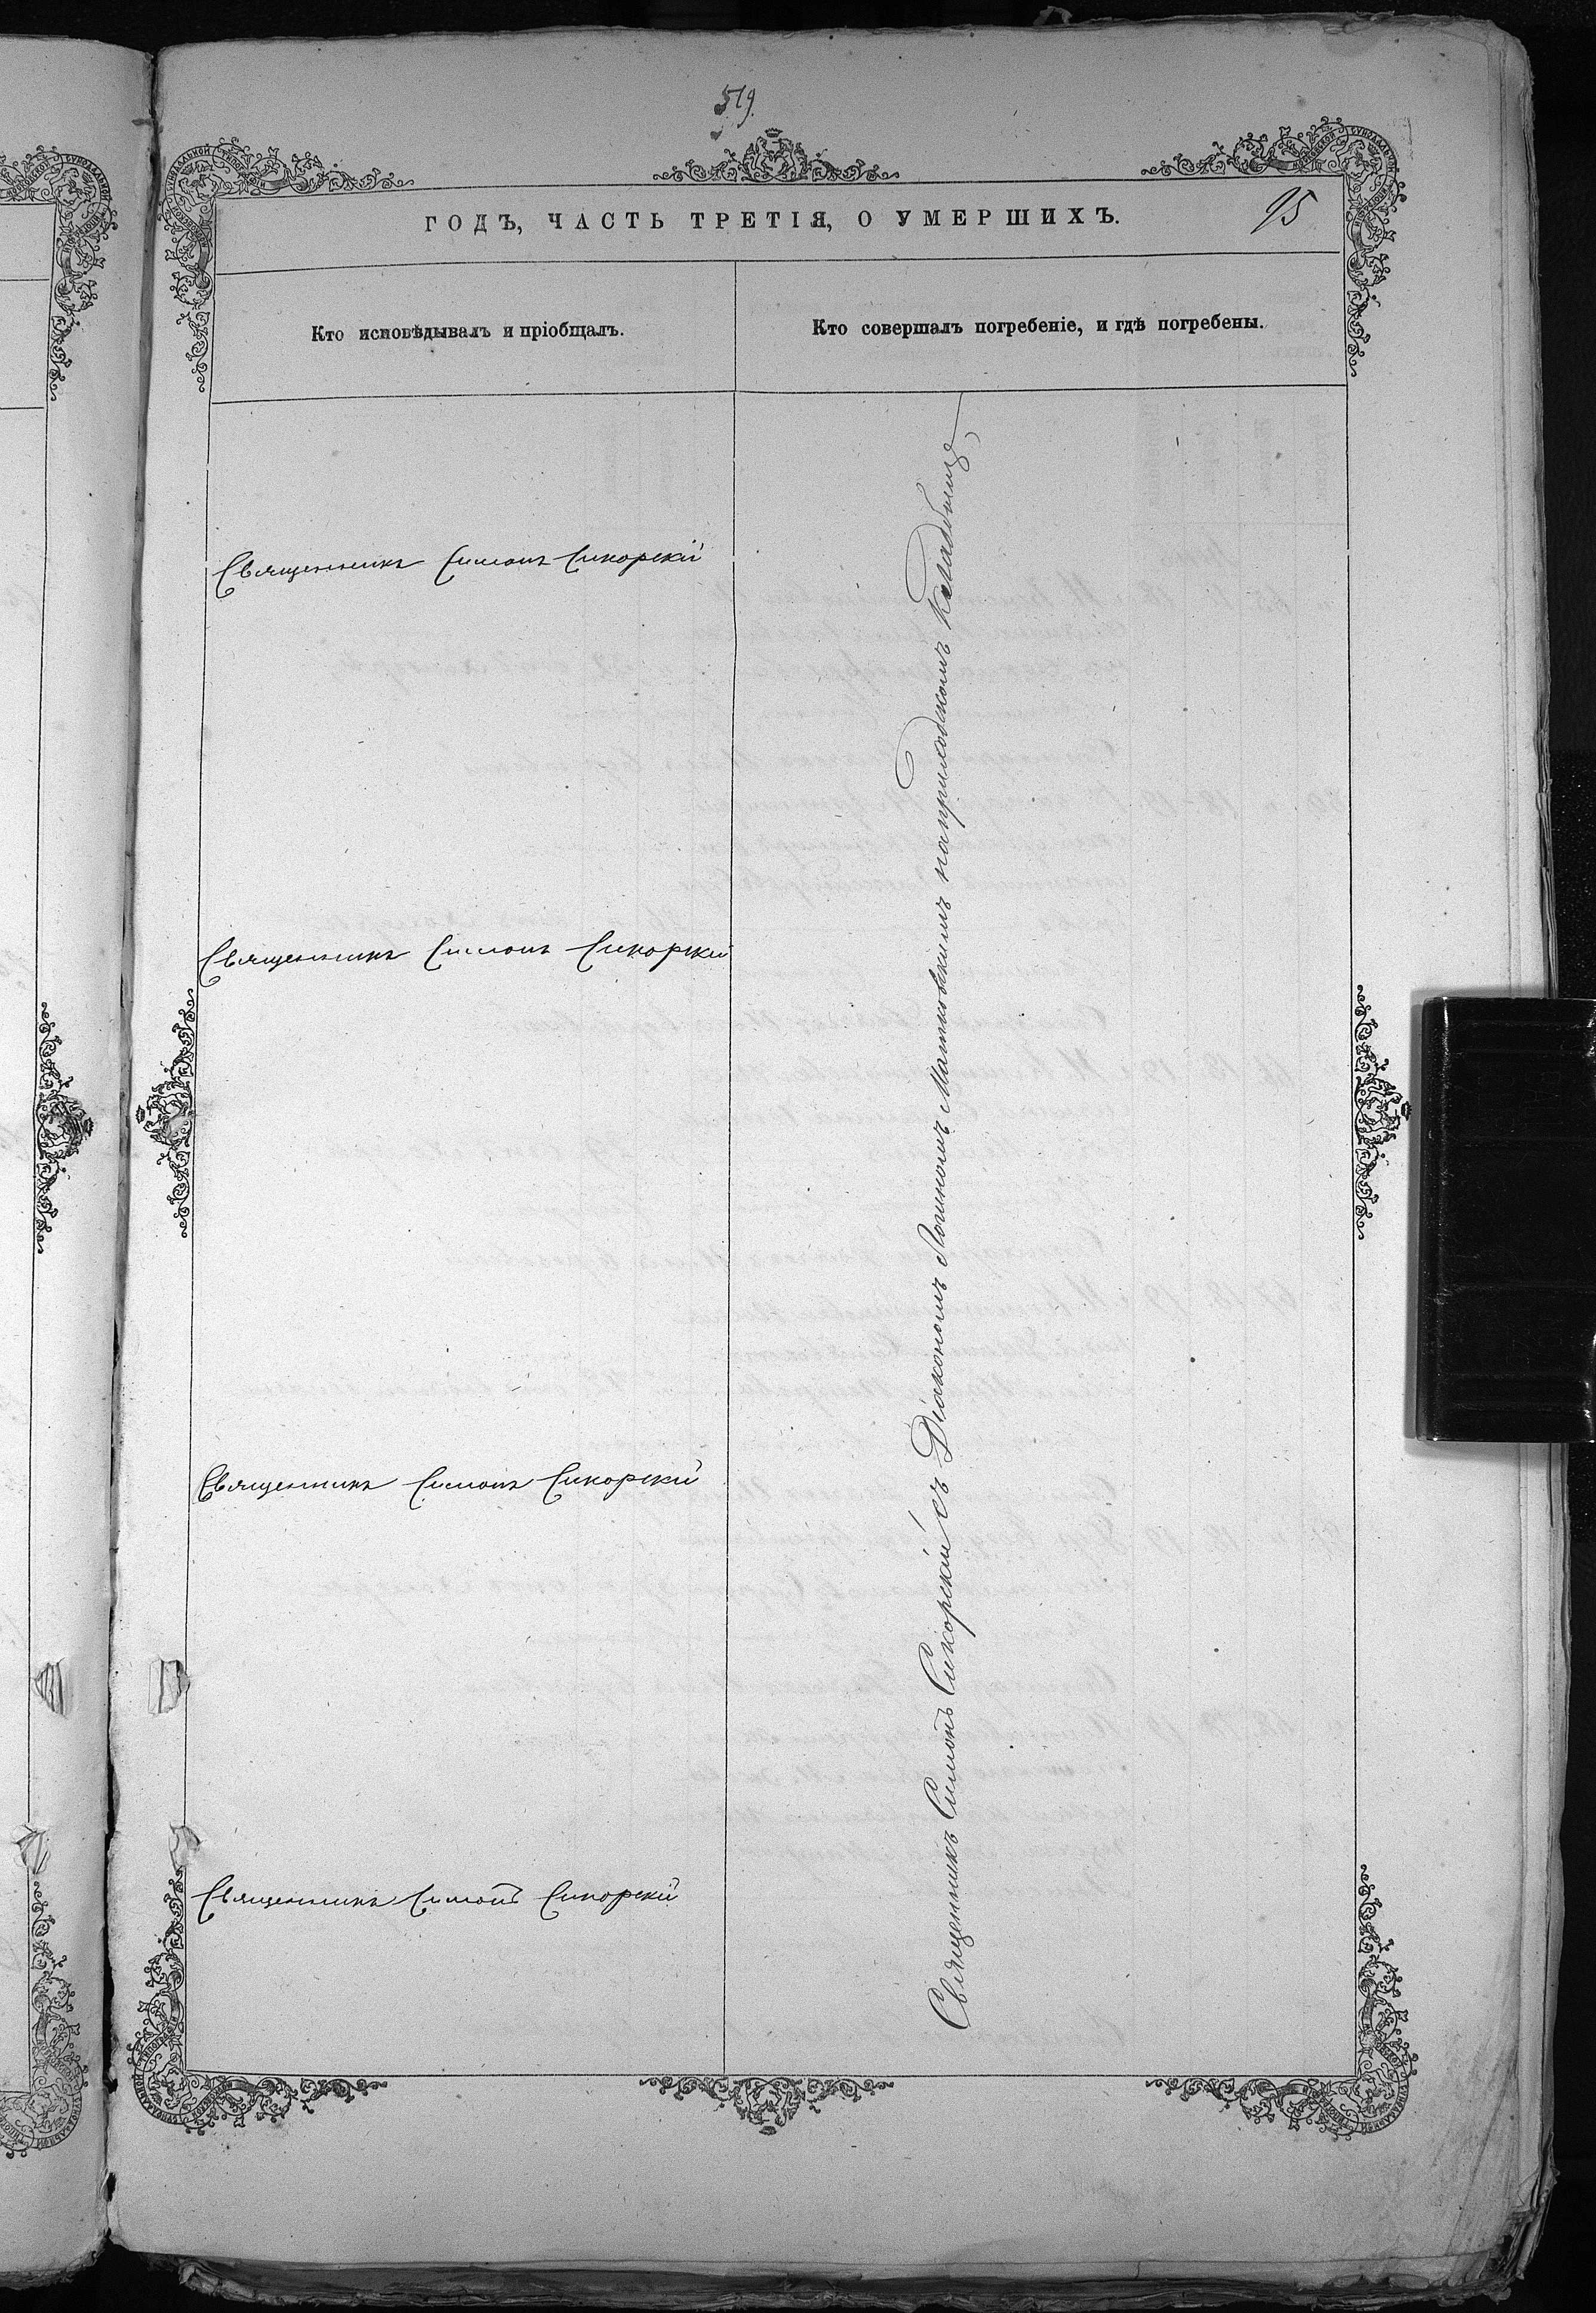 519.
ГОДЪ, ЧАСТЬ ТРЕТІЯ, О УМЕРШИХЪ.
95
Кто исповѣдывалъ и пріобщалъ.
Кто совершалъ погребеніе, и гдѣ погребены.
Священникъ Симонъ Сикорскій
Священникъ Симонъ Сикорскій
Священникъ Симонъ Сикорскій
Священникъ Симонъ Сикорскій
Священникъ Симонъ Сикорскій съ Діакономъ Матковскимъ на приходскомъ кладбищѣ